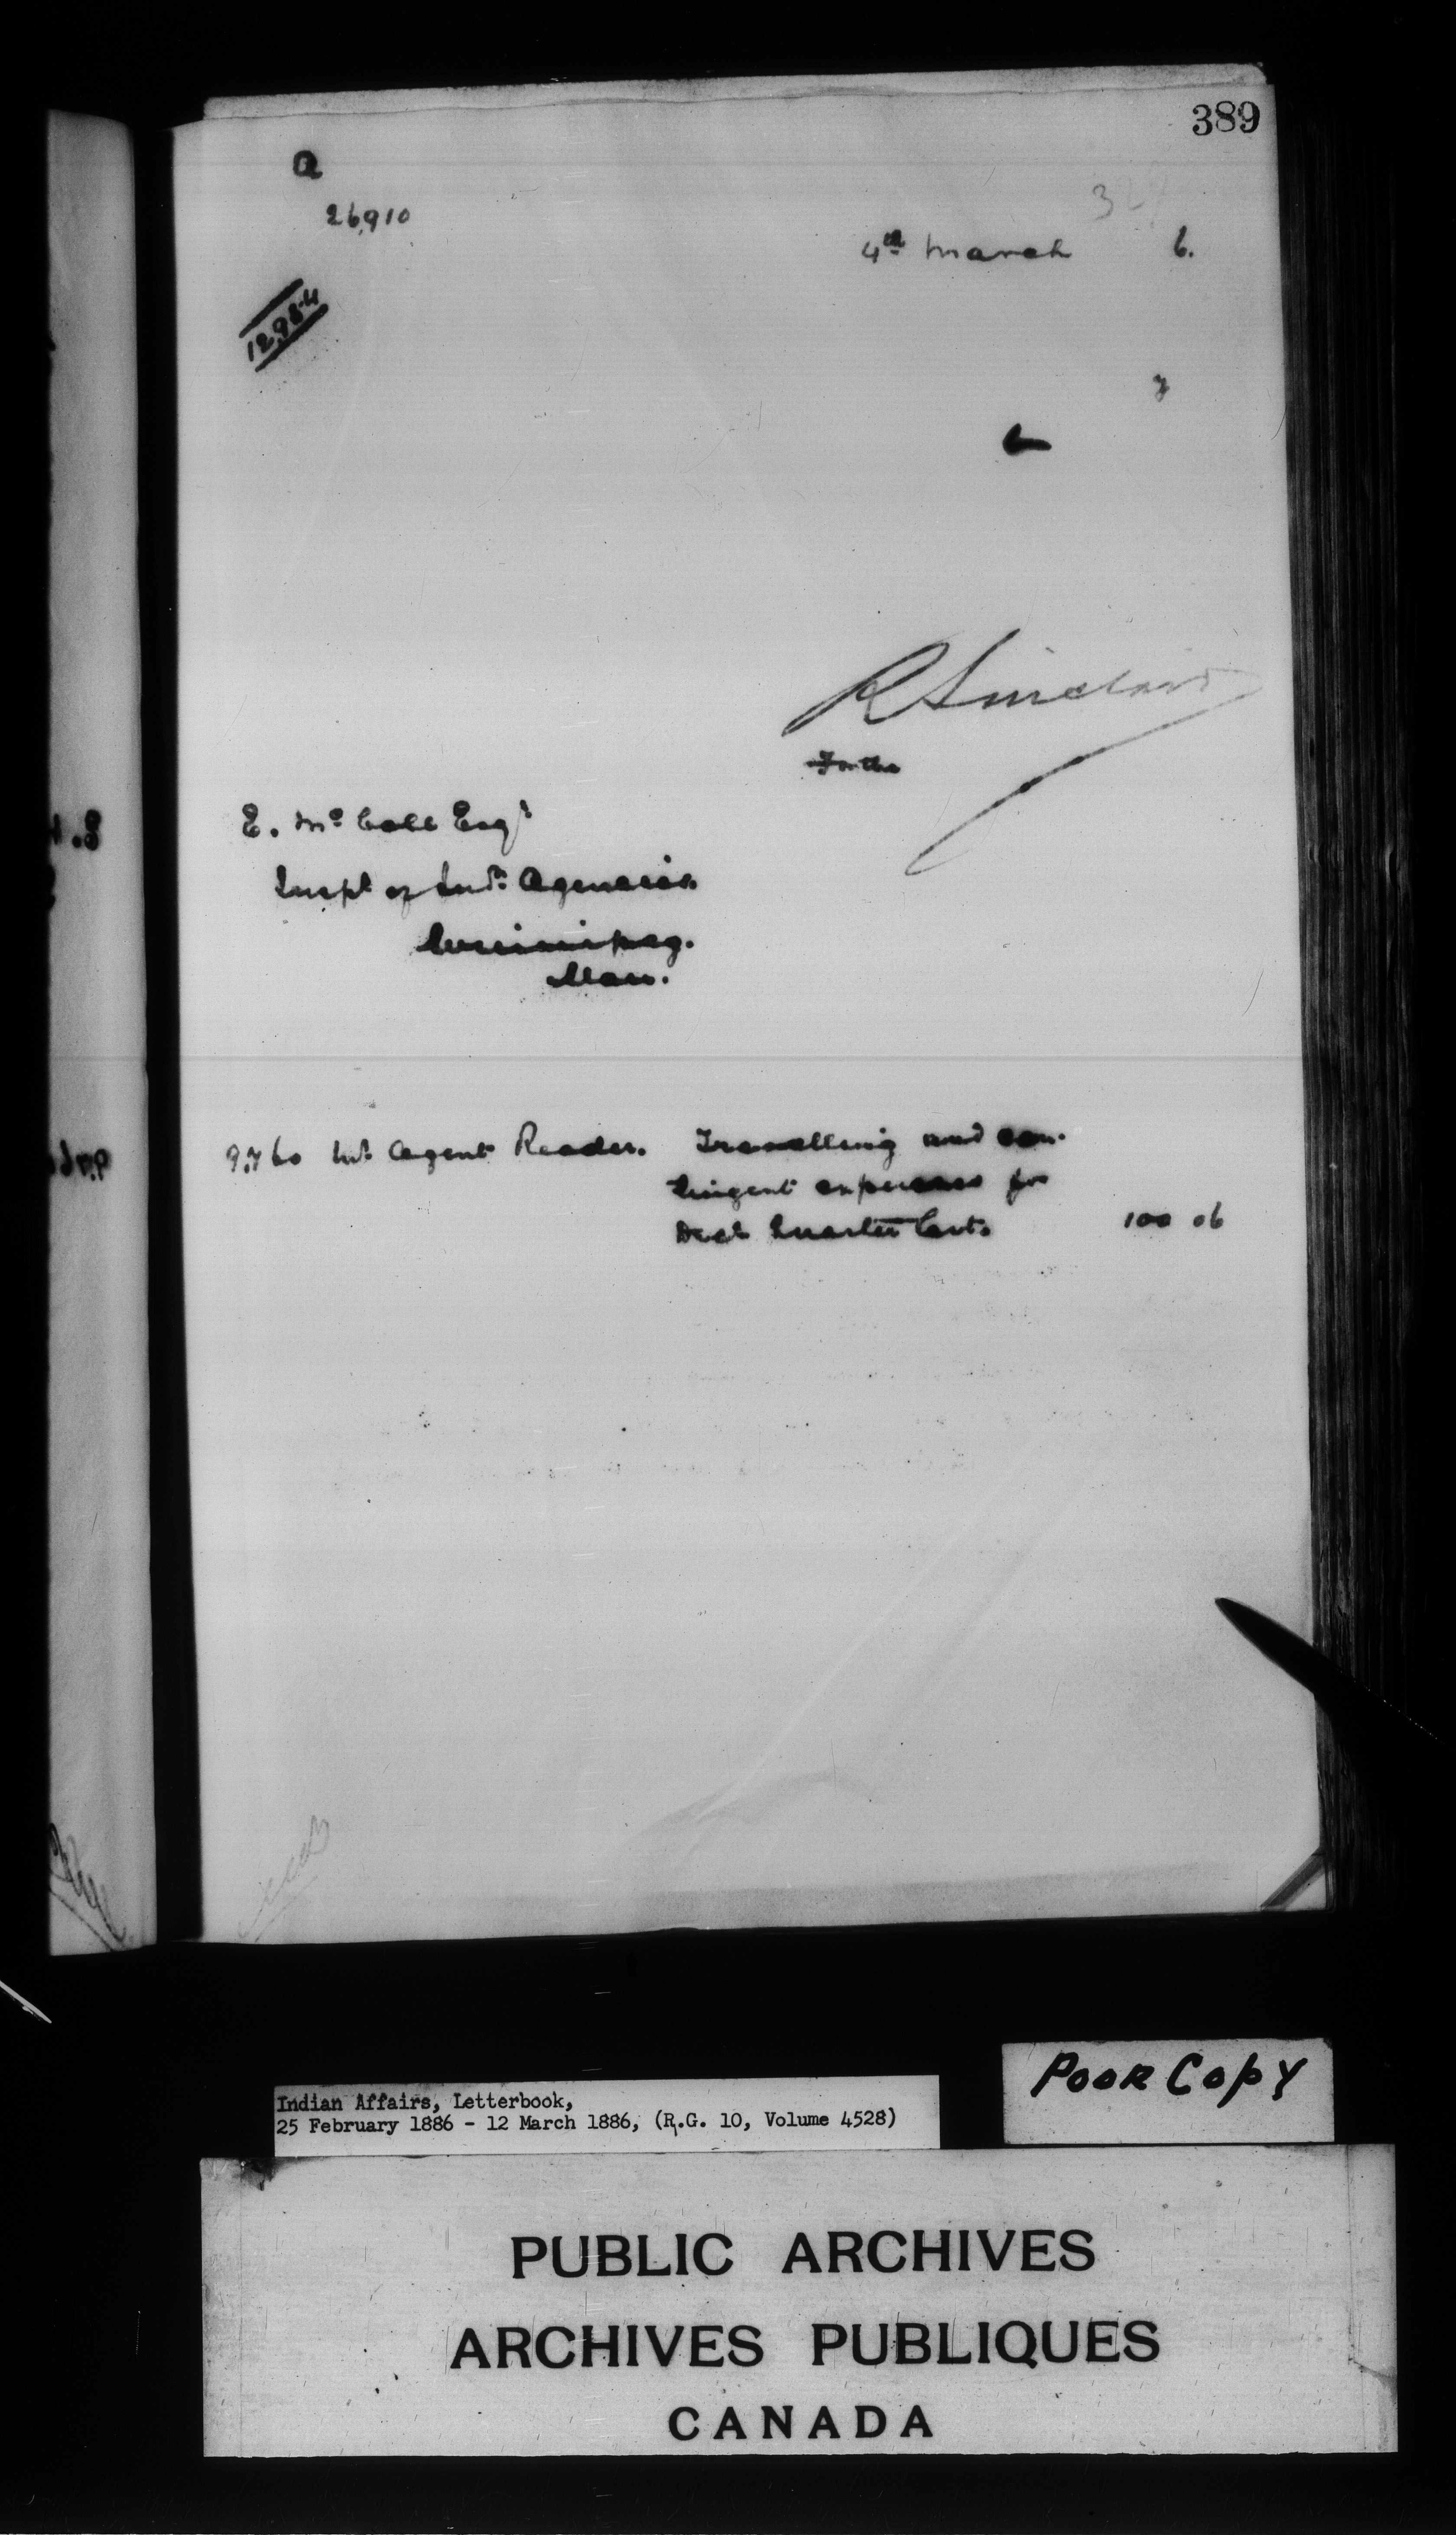 389
a
26,910
4th March 6.
12984
R Sinclair
For the
E. McColl Esqr
Inspr of Indn Agencies
Winnipeg.
Man.
9,760 Indn Agent Reader. Travelling and con-
tingent expenses for
Decr Quarter
100 06
Poor Copy
Indian Affairs, Letterbook,
25 February 1886 - 12 March 1886, (R.G. 10, Volume 4528)
PUBLIC ARCHIVES
ARCHIVES PUBLIQUES
CANADA